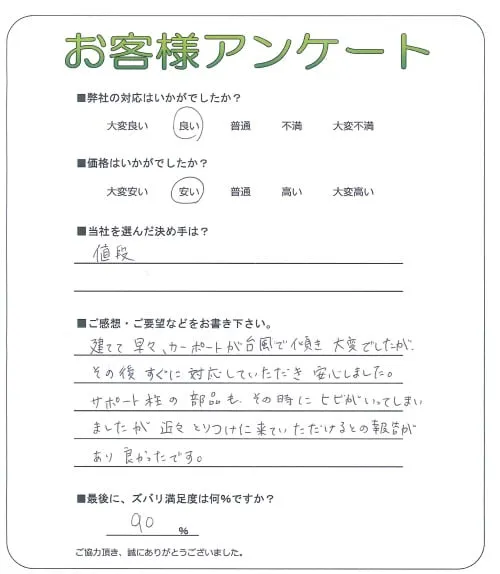 お客様アンケート
■弊社の対応はいかがでしたか？
大変良い 良い 普通 不満 大変不満
■価格はいかがでしたか？
大変安い 安い 普通 高い 大変高い
■当社を選んだ決め手は？
値段
■ご感想・ご要望などをお書き下さい。
建てて 早々、カーポートが台風で傾き 大変でしたが、
その後 すぐに 対応していただき 安心しました。
サポート柱の 部品も、その時に ヒビがいってしまい
ましたが 近々 とりつけに来ていただけるとの報告が
あり 良かったです。
■最後に、ズバリ満足度は何％ですか？
90 %
ご協力頂き、誠にありがとうございました。